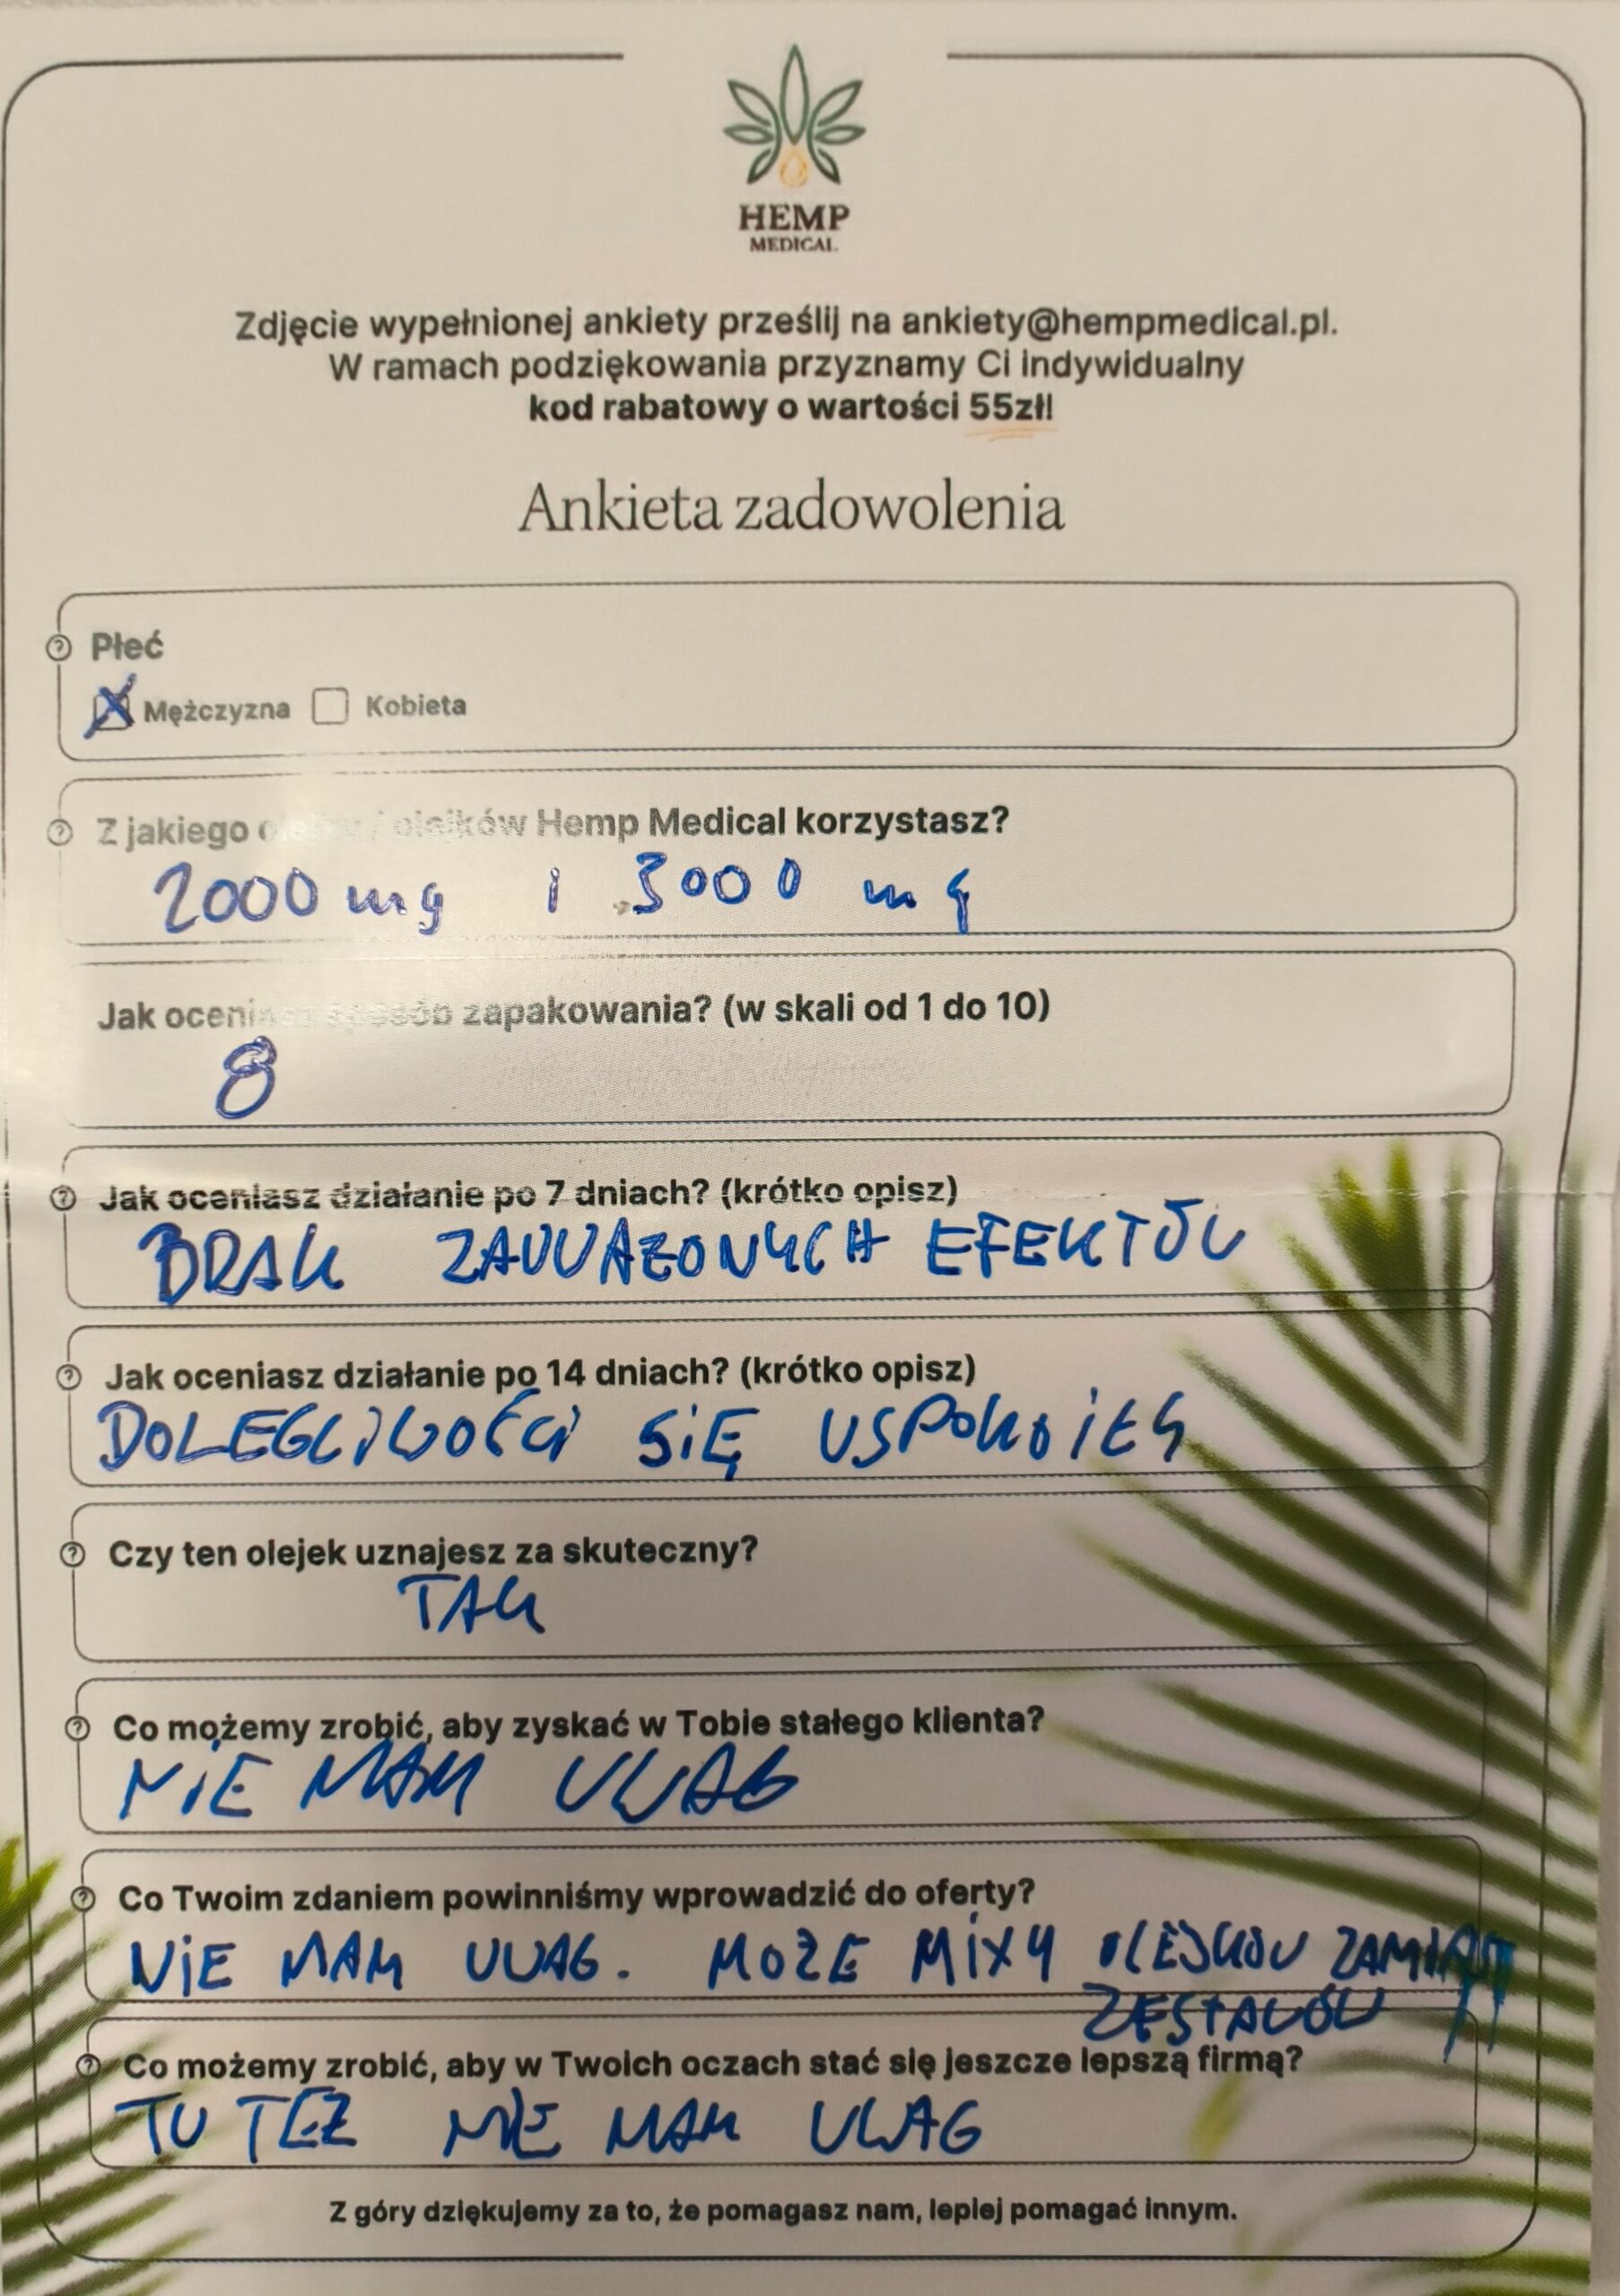 HEMP
MEDICAL
Zdjęcie wypełnionej ankiety prześlij na ankiety@hempmedical.pl.
W ramach podziękowania przyznamy Ci indywidualny
kod rabatowy o wartości 55zł!
Ankieta zadowolenia
Płeć
Mężczyzna Kobieta
Z jakiego olejku / olejków Hemp Medical korzystasz?
2000 mg i 3000 mg
Jak oceniasz sposób zapakowania? (w skali od 1 do 10)
8
Jak oceniasz działanie po 7 dniach? (krótko opisz)
BRAK ZAUWAŻONYCH EFEKTÓW
Jak oceniasz działanie po 14 dniach? (krótko opisz)
DOLEGLIWOŚCI SIĘ USPOKOIŁY
Czy ten olejek uznajesz za skuteczny?
TAK
Co możemy zrobić, aby zyskać w Tobie stałego klienta?
NIE MAM UWAG
Co Twoim zdaniem powinniśmy wprowadzić do oferty?
NIE MAM UWAG. MOŻE MIXY OLEJKÓW ZAMIAST
ZESTAWÓW
Co możemy zrobić, aby w Twoich oczach stać się jeszcze lepszą firmą?
TU TEŻ NIE MAM UWAG
Z góry dziękujemy za to, że pomagasz nam, lepiej pomagać innym.